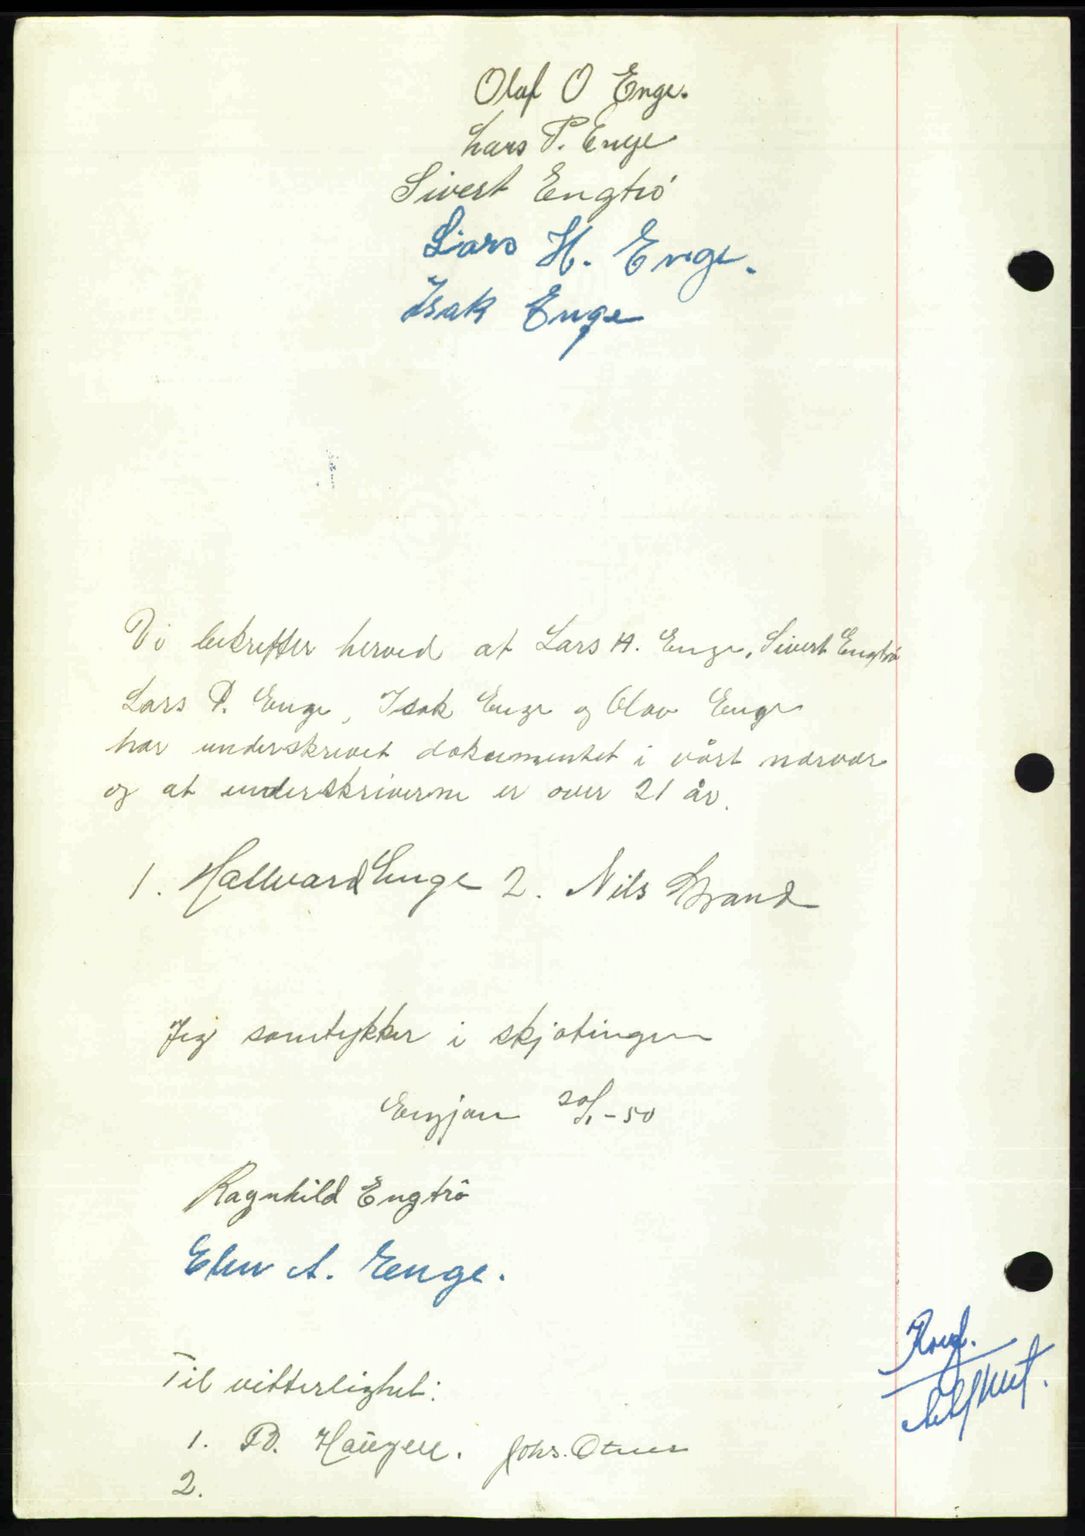 Olaf O Enge.
Lars P. Enge
Sivert Engtrö
Lars H. Enge.
Isak Enge
Vi bekrefter herved at Lars H. Enge, Sivert Engtrö
Lars P. Enge, Isak Enge og Olav Enge
har underskrevet dokumentet i vårt nærvær
og at underskriverne er over 21 år.
1. Hallvard Enge 2. Nils Brand
Jeg samtykker i skjøtingen
Engjan 20/1-50
Ragnhild Engtrö
Elen A. Enge.
Til vitterlighet:
1. P. Haugen. Johs. Otnes
2.
Konf.